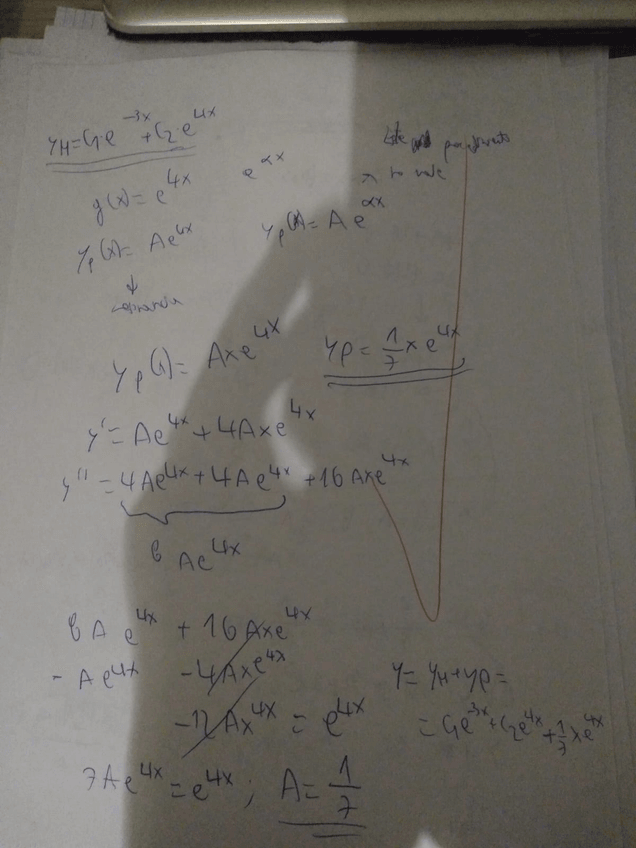 y_H = C₁·e^{-3x} + C₂·e^{4x}
g(x) = e^{4x} e^{αx}
y_p(x) = Ae^{4x} y_p(x) = A e^{αx}
↓
y_p(x) = Axe^{4x} y_p = 1/7 x e^{4x}
y' = Ae^{4x} + 4Axe^{4x}
y'' = 4Ae^{4x} + 4Ae^{4x} + 16Axe^{4x}
8 Ae^{4x}
8A e^{4x} + 16Axe^{4x}
- Ae^{4x} - 4Axe^{4x} y = y_H + y_p =
-12Ax^{4x} = e^{4x} = C₁e^{3x} + C₂e^{4x} + 1/7 xe^{4x}
7Ae^{4x} = e^{4x}; A = 1/7